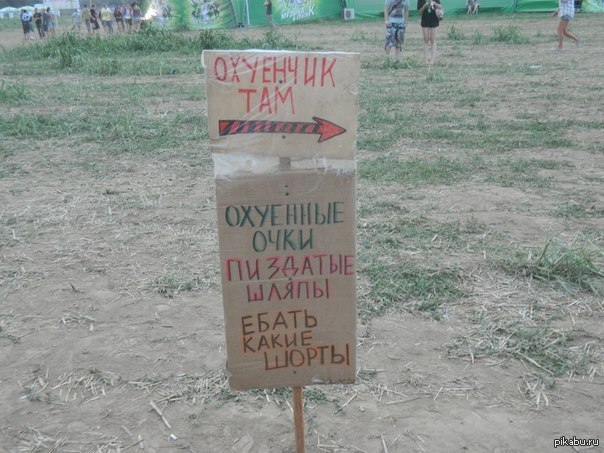 ОХУЕНЧИК
ТАМ
ОХУЕННЫЕ
ОЧКИ
ПИЗДАТЫЕ
ШЛЯПЫ
ЕБАТЬ
КАКИЕ
ШОРТЫ
pikabu.ru